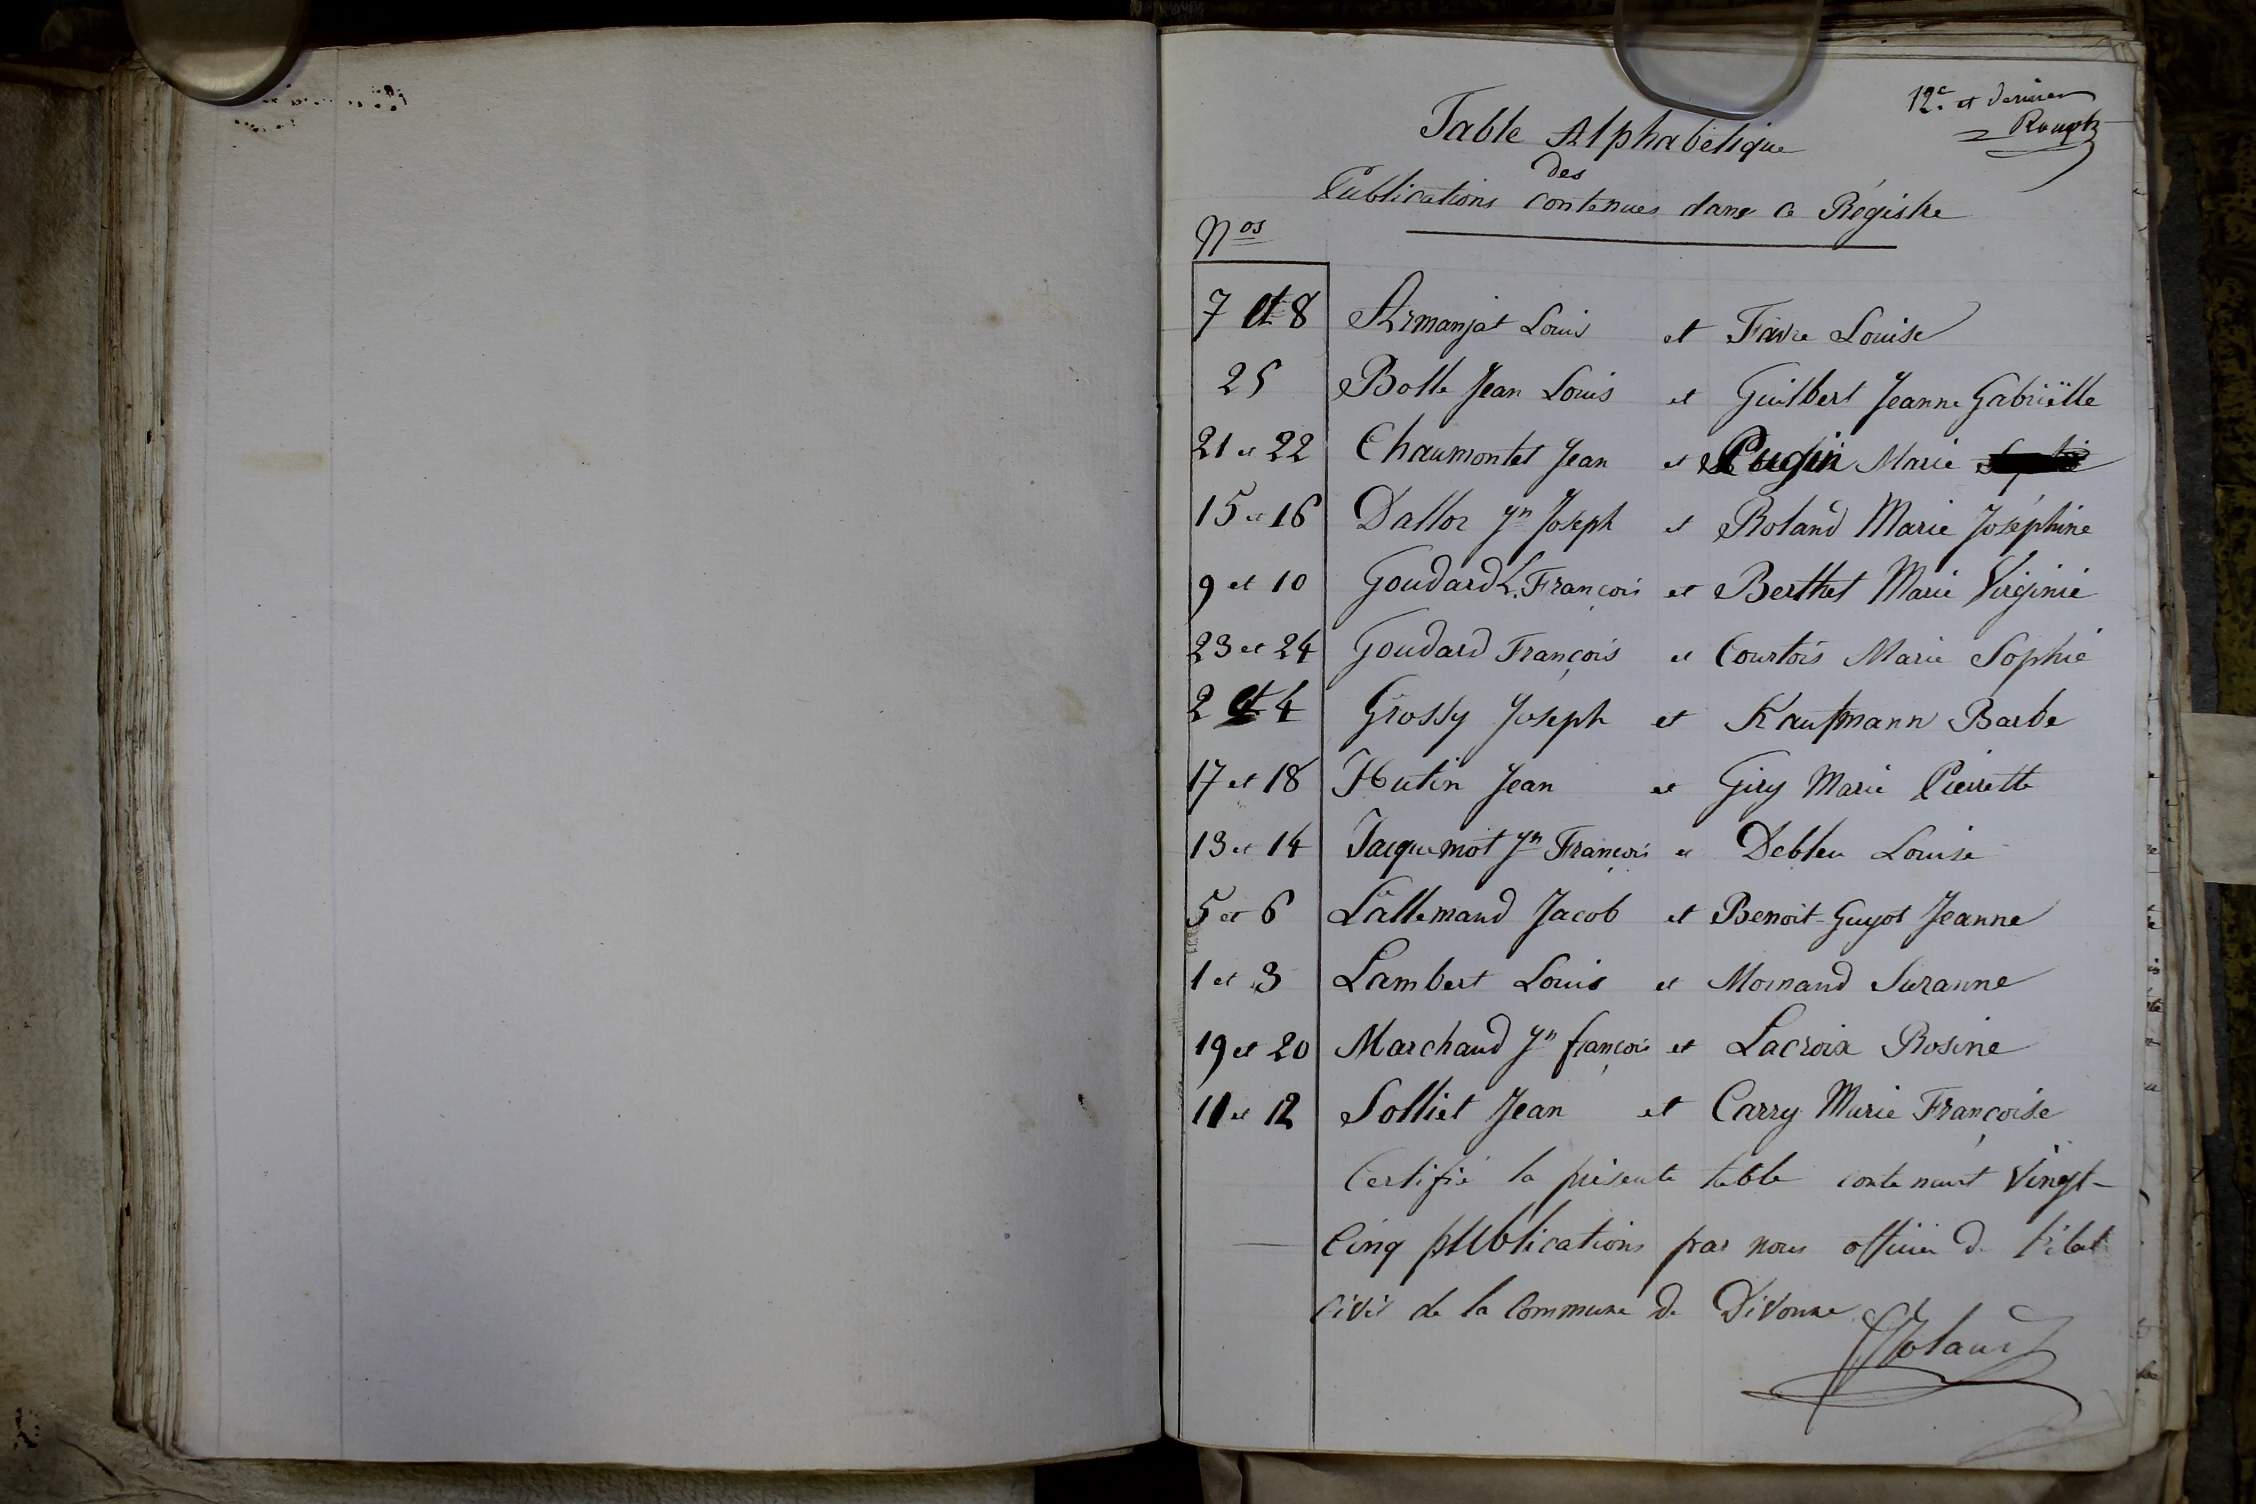 12e. et dernier
Rouph
Table Alphabétique
des
Publications contenues dans ce Régistre
Nos
7 et 8 Armanjat Louis et Favre Louise
25 Bolle Jean Louis et Guilbert Jeanne Gabriëlle
21 et 22 Chaumontet Jean et Pugin Marie
15 et 16 Dalloz Jn Joseph et Roland Marie Joséphine
9 et 10 Goudard L. François et Berthet Marie Virginie
23 et 24 Goudard François et Courtois Marie Sophie
2 et 4 Grossy Joseph et Kaufmann Barbe
17 et 18 Hutin Jean et Giry Marie Pierrette
13 et 14 Jacquemot Jn François et Debleu Louise
5 et 6 Lallemand Jacob et Benoit-Guyot Jeanne
1 et 3 Lambert Louis et Mornand Suzanne
19 et 20 Marchand Jn françois et Lacroix Rosine
11 et 12 Solliet Jean et Carry Marie Françoise
Certifié la présente table contenant Vingt-
Cinq publications par nous officier de l'état
civil de la Commune de Divonne
Roland